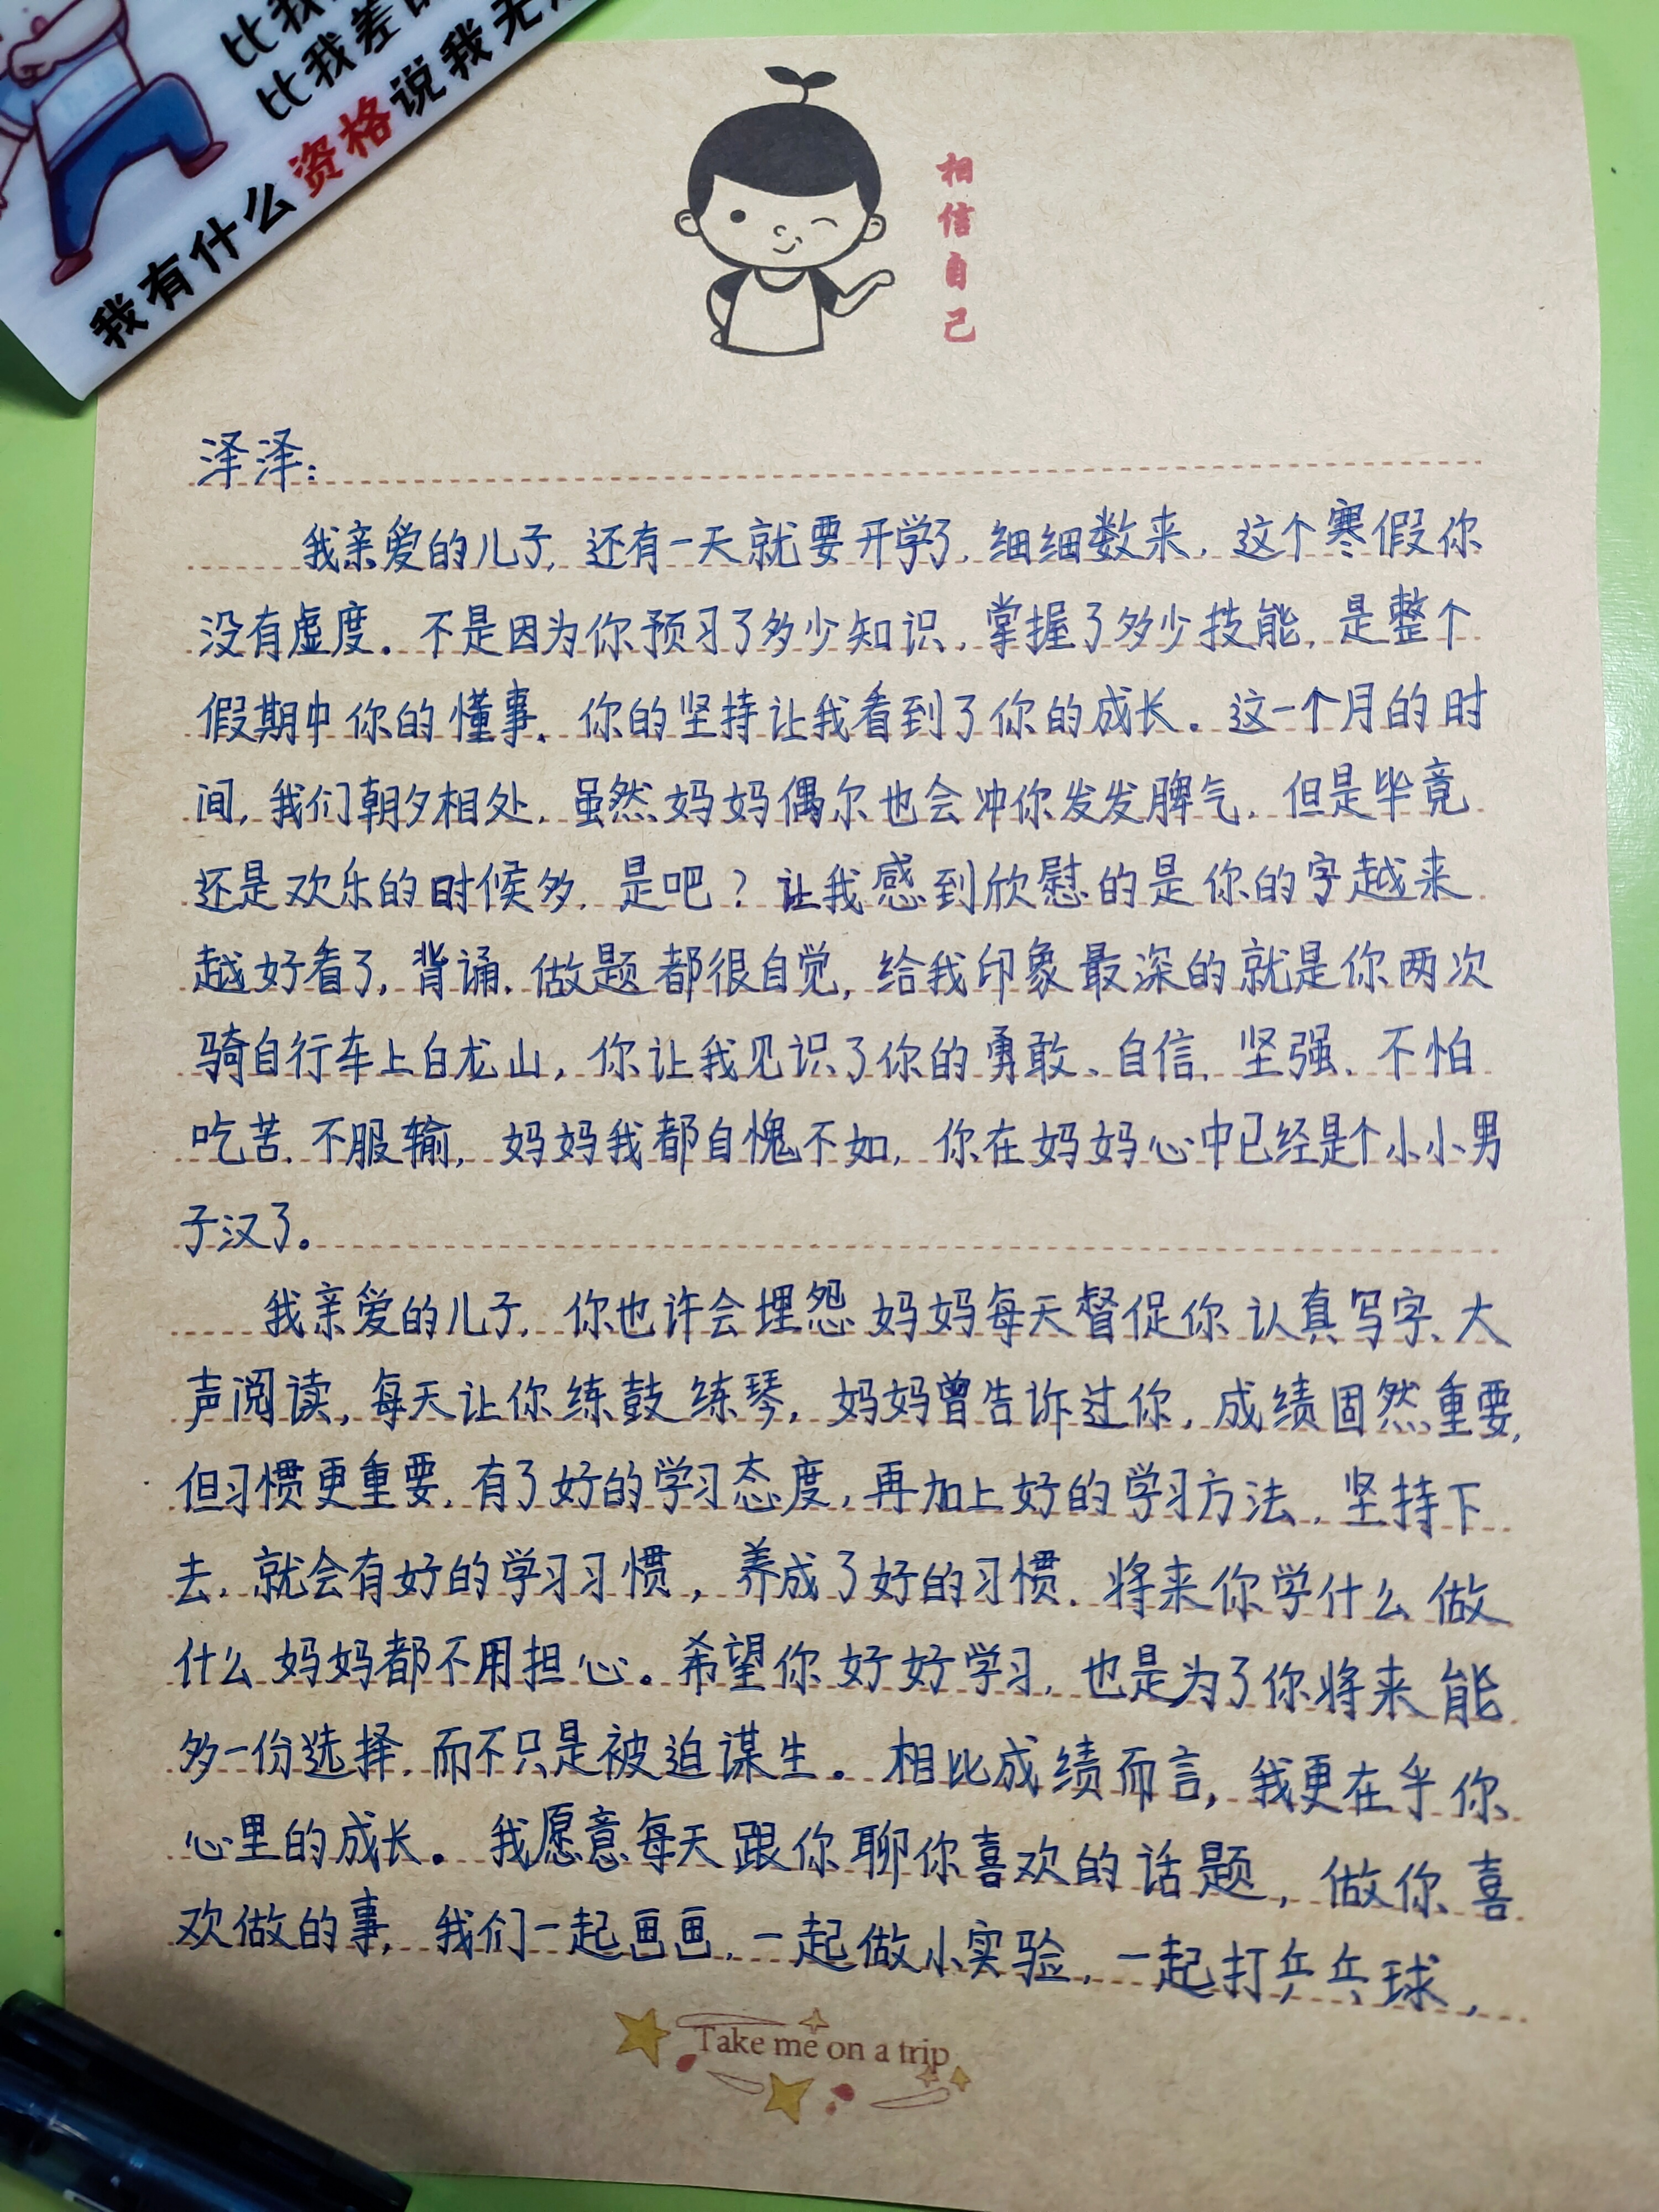 比我
比我差的
我有什么资格说我无
相信自己
泽泽：
我亲爱的儿子，还有一天就要开学了，细细数来，这个寒假你
没有虚度。不是因为你预习了多少知识，掌握了多少技能，是整个
假期中你的懂事、你的坚持让我看到了你的成长。这一个月的时
间，我们朝夕相处，虽然妈妈偶尔也会冲你发发脾气，但是毕竟
还是欢乐的时候多，是吧？让我感到欣慰的是你的字越来
越好看了，背诵、做题都很自觉，给我印象最深的就是你两次
骑自行车上白龙山，你让我见识了你的勇敢、自信、坚强、不怕
吃苦、不服输，妈妈我都自愧不如，你在妈妈心中已经是个小小男
子汉了。
我亲爱的儿子，你也许会埋怨妈妈每天督促你认真写字、大
声阅读，每天让你练鼓练琴，妈妈曾告诉过你，成绩固然重要，
但习惯更重要，有了好的学习态度，再加上好的学习方法，坚持下
去，就会有好的学习习惯，养成了好的习惯，将来你学什么做
什么妈妈都不用担心。希望你好好学习，也是为了你将来能
多一份选择，而不只是被迫谋生。相比成绩而言，我更在乎你
心里的成长。我愿意每天跟你聊你喜欢的话题，做你喜
欢做的事，我们一起画画，一起做小实验，一起打乒乓球，
Take me on a trip